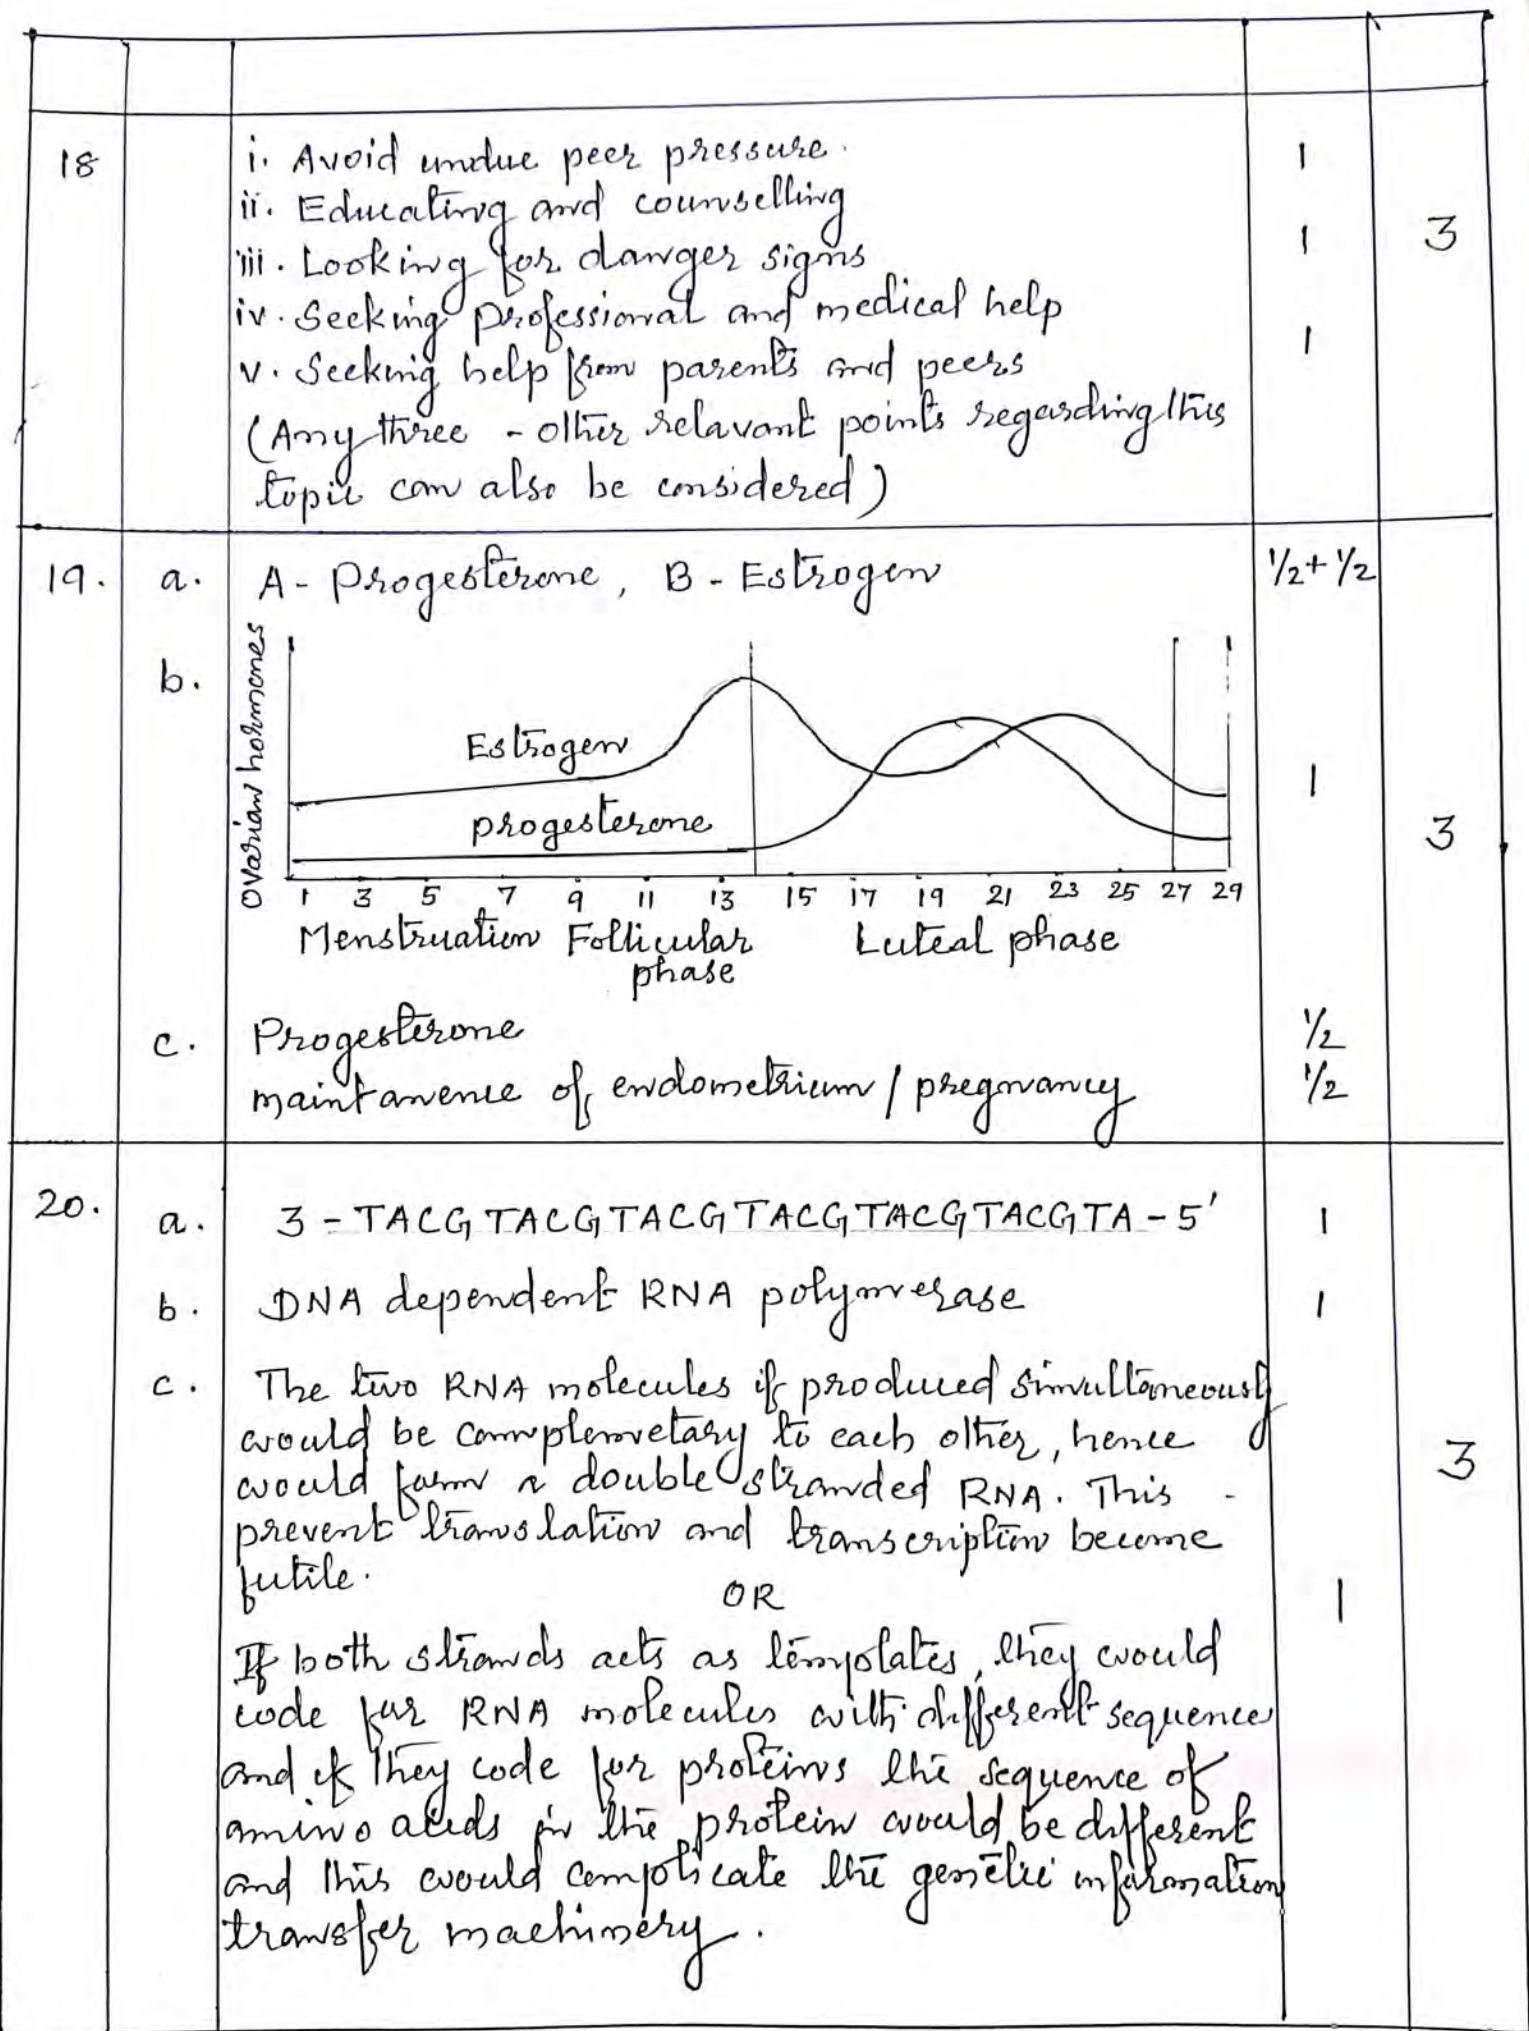 18 i. Avoid undue peer pressure. 1
ii. Educating and counselling
iii. Looking for danger signs 1 3
iv. Seeking professional and medical help
v. Seeking help from parents and peers 1
(Any three - other relavant points regarding this
topic can also be considered)
19. a. A - Progesterone, B - Estrogen 1/2 + 1/2
b. Ovarian hormones
Estrogen 1
progesterone 3
1 3 5 7 9 11 13 15 17 19 21 23 25 27 29
Menstruation Follicular Luteal phase
phase
c. Progesterone 1/2
maintanence of endometrium / pregnancy 1/2
20. a. 3 - TACGTACGTACGTACGTACGTACGTA - 5' 1
b. DNA dependent RNA polymerase 1
c. The two RNA molecules if produced simultaneously
would be complemetary to each other, hence
would form a double stranded RNA. This - 3
prevent translation and transcription become
futile.
OR 1
If both strands acts as templates, they would
code for RNA molecules with different sequence
and if they code for proteins the sequence of
amino acids in the protein would be different
and this would complicate the genetic information
transfer machinery.